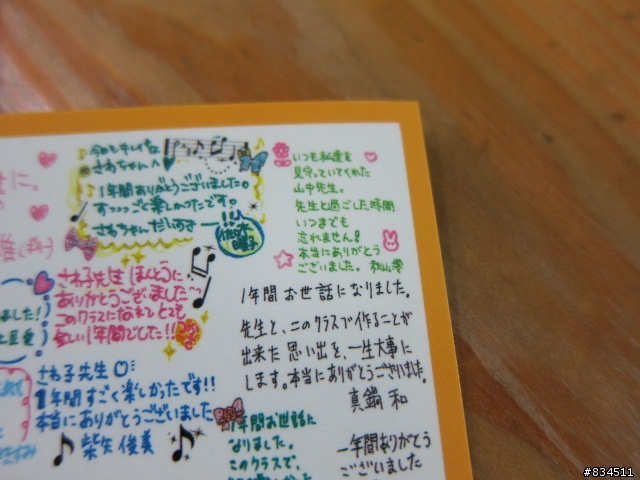 今もキレイな
さわちゃんへ
1年間ありがとうございました。
すっっっごく楽しかったです。
さわちゃんだいすき
!!
いつも私達を
見守っていてくれた
山中先生。
先生と過ごした時間
いつまでも
忘れません!
本当にありがとう
ございました。
さわ子先生 ほんとうに
ありがとうございました
このクラスになれてとても
楽しい1年間でした!!
1年間お世話になりました。
先生と、このクラスで作ることが
出来た思い出を、一生大事に
します。本当にありがとうございました。
真鍋 和
さわ子先生
1年間すごく楽しかったです!!
本当にありがとうございました
柴矢 俊美
1年間お世話に
なりました。
このクラスで、
一年間ありがとう
ございました
#834511